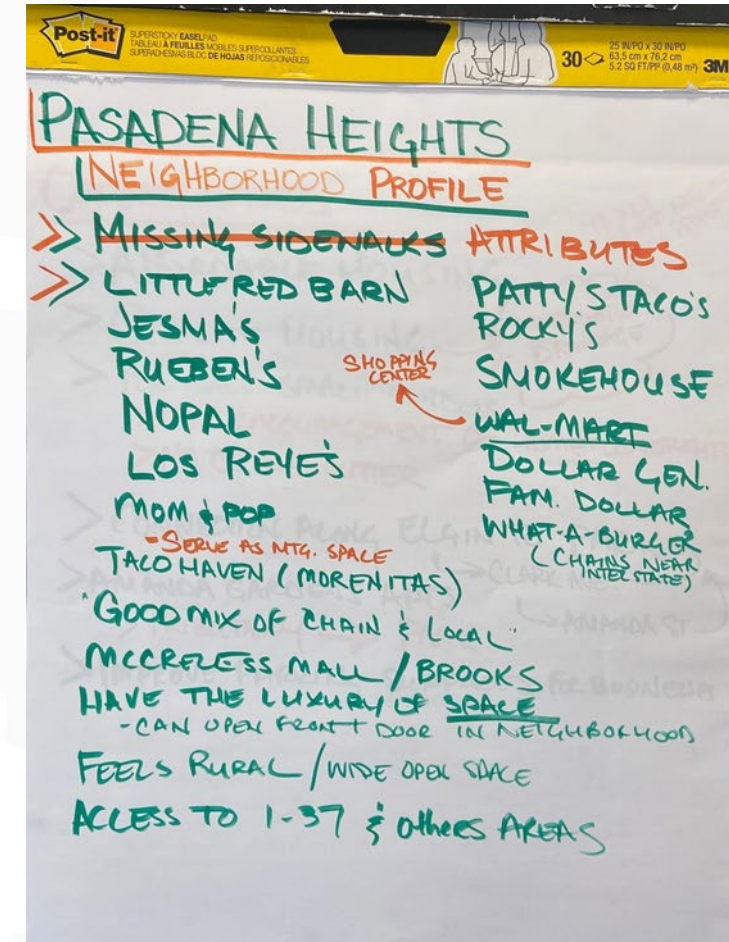 Post-it
SUPERSTICKY EASEL PAD
TABLEAU À FEUILLES MOBILES SUPERCOLLANTES
SUPERADHESIVAS BLOC DE HOJAS REPOSICIONABLES
30
25 IN/PO x 30 IN/PO
63,5 cm x 76,2 cm
5.2 SQ FT/PP (0,48 m²)
3M
PASADENA HEIGHTS
NEIGHBORHOOD PROFILE
>> MISSING SIDEWALKS ATTRIBUTES
>> LITTLE RED BARN
JESMA'S
RUEBEN'S
NOPAL
LOS REYE'S
MOM & POP
- SERVE AS MTG. SPACE
TACO HAVEN (MORENITAS)
PATTY'S TACO'S
ROCKY'S
SMOKEHOUSE
SHOPPING
CENTER
WAL-MART
DOLLAR GEN.
FAM. DOLLAR
WHAT-A-BURGER
(CHAINS NEAR
INTERSTATE)
"GOOD MIX OF CHAIN & LOCAL"
MCCRELESS MALL / BROOKS
HAVE THE LUXURY OF SPACE
- CAN OPEN FRONT DOOR IN NEIGHBORHOOD
FEELS RURAL / WIDE OPEN SPACE
ACCESS TO I-37 & OTHERS AREAS